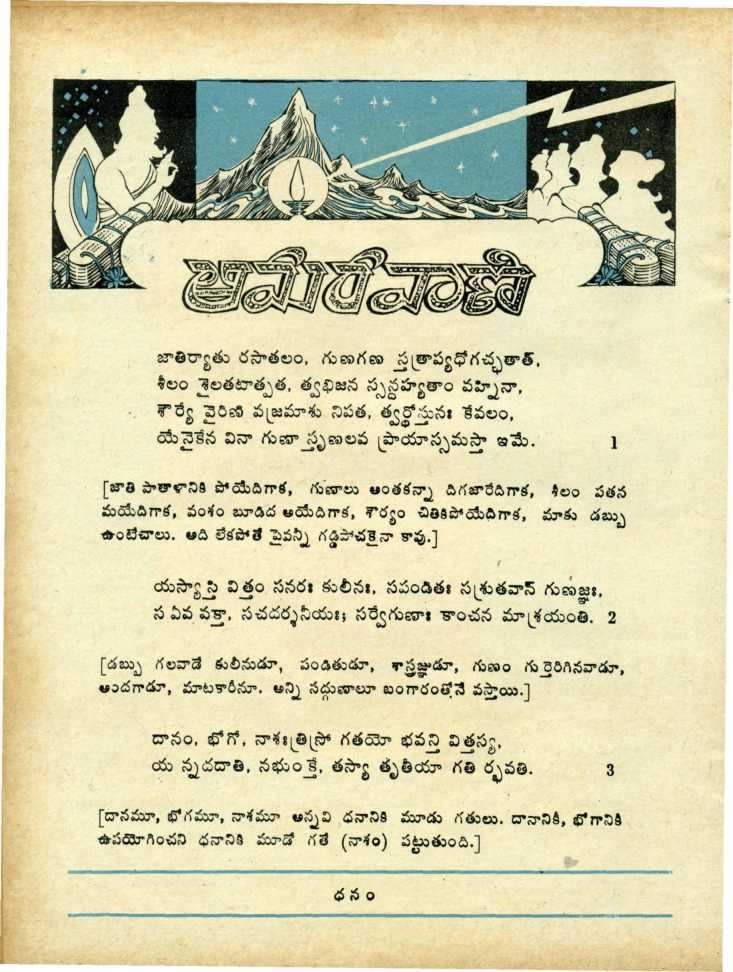 అమరవాణి
జాతిర్యాతు రసాతలం, గుణగణ స్తత్రాప్యధోగచ్ఛతాత్,
శీలం శైలతటాత్పత, త్వభిజన స్సన్దహ్యతాం వహ్నినా,
శౌర్యే వైరిణి వజ్రమాశు నిపత, త్వర్థోస్తునః కేవలం,
యేనైకేన వినా గుణా స్తృణలవ ప్రాయాస్సమస్తా ఇమే. 1
[జాతి పాతాళానికి పోయేదిగాక, గుణాలు అంతకన్నా దిగజారేదిగాక, శీలం పతన
మయేదిగాక, వంశం బూడిద అయేదిగాక, శౌర్యం చితికిపోయేదిగాక, మాకు డబ్బు
ఉంటేచాలు. అది లేకపోతే పైవన్నీ గడ్డిపోచకైనా కావు.]
యస్యాస్తి విత్తం సనరః కులీనః, సపండితః సశ్రుతవాన్ గుణజ్ఞః,
స ఏవ వక్తా, సచదర్శనీయః; సర్వేగుణాః కాంచన మాశ్రయంతి. 2
[డబ్బు గలవాడే కులీనుడూ, పండితుడూ, శాస్త్రజ్ఞుడూ, గుణం గుర్తెరిగినవాడూ,
అందగాడూ, మాటకారీనూ. అన్ని సద్గుణాలూ బంగారంతోనే వస్తాయి.]
దానం, భోగో, నాశఃత్రిస్రో గతయో భవన్తి విత్తస్య,
య న్నదదాతి, నభుంక్తే, తస్యా తృతీయా గతి ర్భవతి. 3
[దానమూ, భోగమూ, నాశమూ అన్నవి ధనానికి మూడు గతులు. దానానికి, భోగానికి
ఉపయోగించని ధనానికి మూడో గతే (నాశం) పట్టుతుంది.]
ధనం